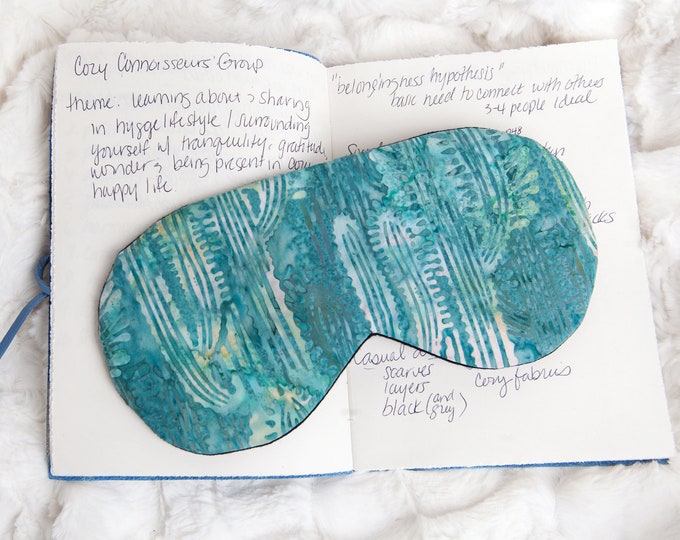 Cozy Connoisseurs' Group
theme: learning about & sharing
in hygge lifestyle / surrounding
yourself w/ tranquility, gratitude,
wonder & being present in cozy
happy life
"belongingness hypothesis"
basic need to connect with others
3-4 people ideal
casual
scarves
layers
black (and grey)
cozy fabrics